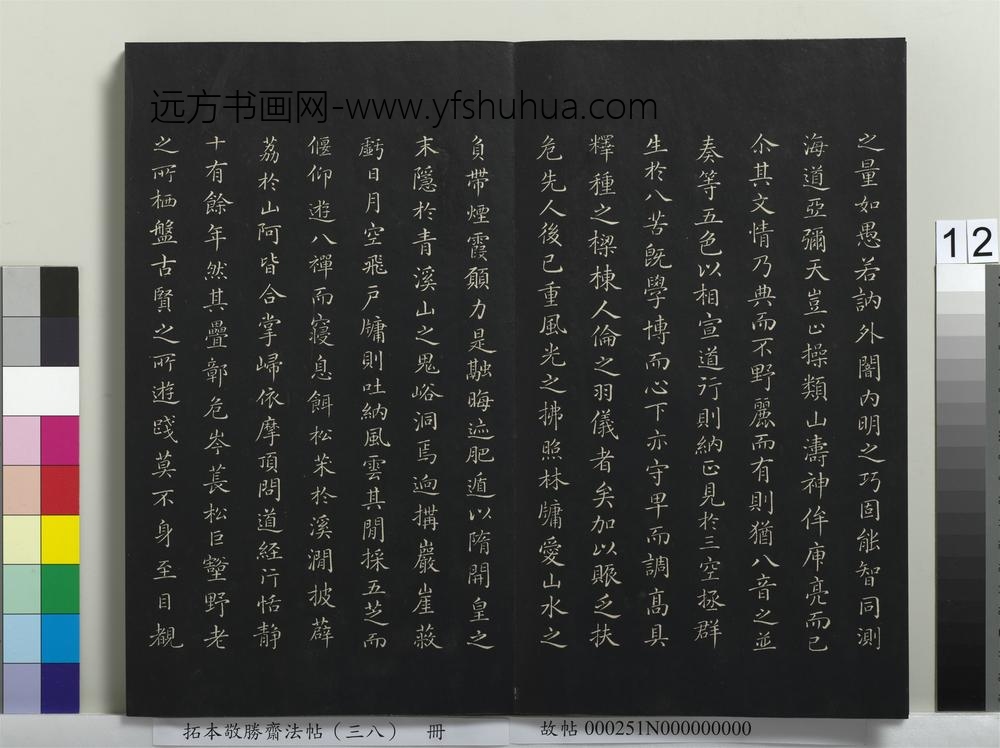 之量如愚若訥外闇内明之巧固能智同測
海道亞彌天豈止操類山濤神侔庾亮而已
尒其文情乃典而不野麗而有則猶八音之並
奏等五色以相宣道行則納正見於三空拯群
生於八苦既學博而心下亦守卑而調高具
釋種之樑棟人倫之羽儀者矣加以賑乏扶
危先人後己重風光之拂照林牖愛山水之
負帶煙霞願力是融晦迹肥遁以隋開皇之
末隱於青溪山之鬼峪洞焉迥搆巖崖蔽
虧日月空飛戶牖則吐納風雲其間採五芝而
偃仰遊八禪而寢息餌松茱於溪澗披薜
荔於山阿皆合掌歸依摩頂問道經行恬静
十有餘年然其疊鄣危岑萇松巨壑野老
之所栖盤古賢之所遊踐莫不身至目觀
远方书画网-www.yfshuhua.com
12
拓本敬勝齋法帖（三八） 冊
故帖 000251N000000000